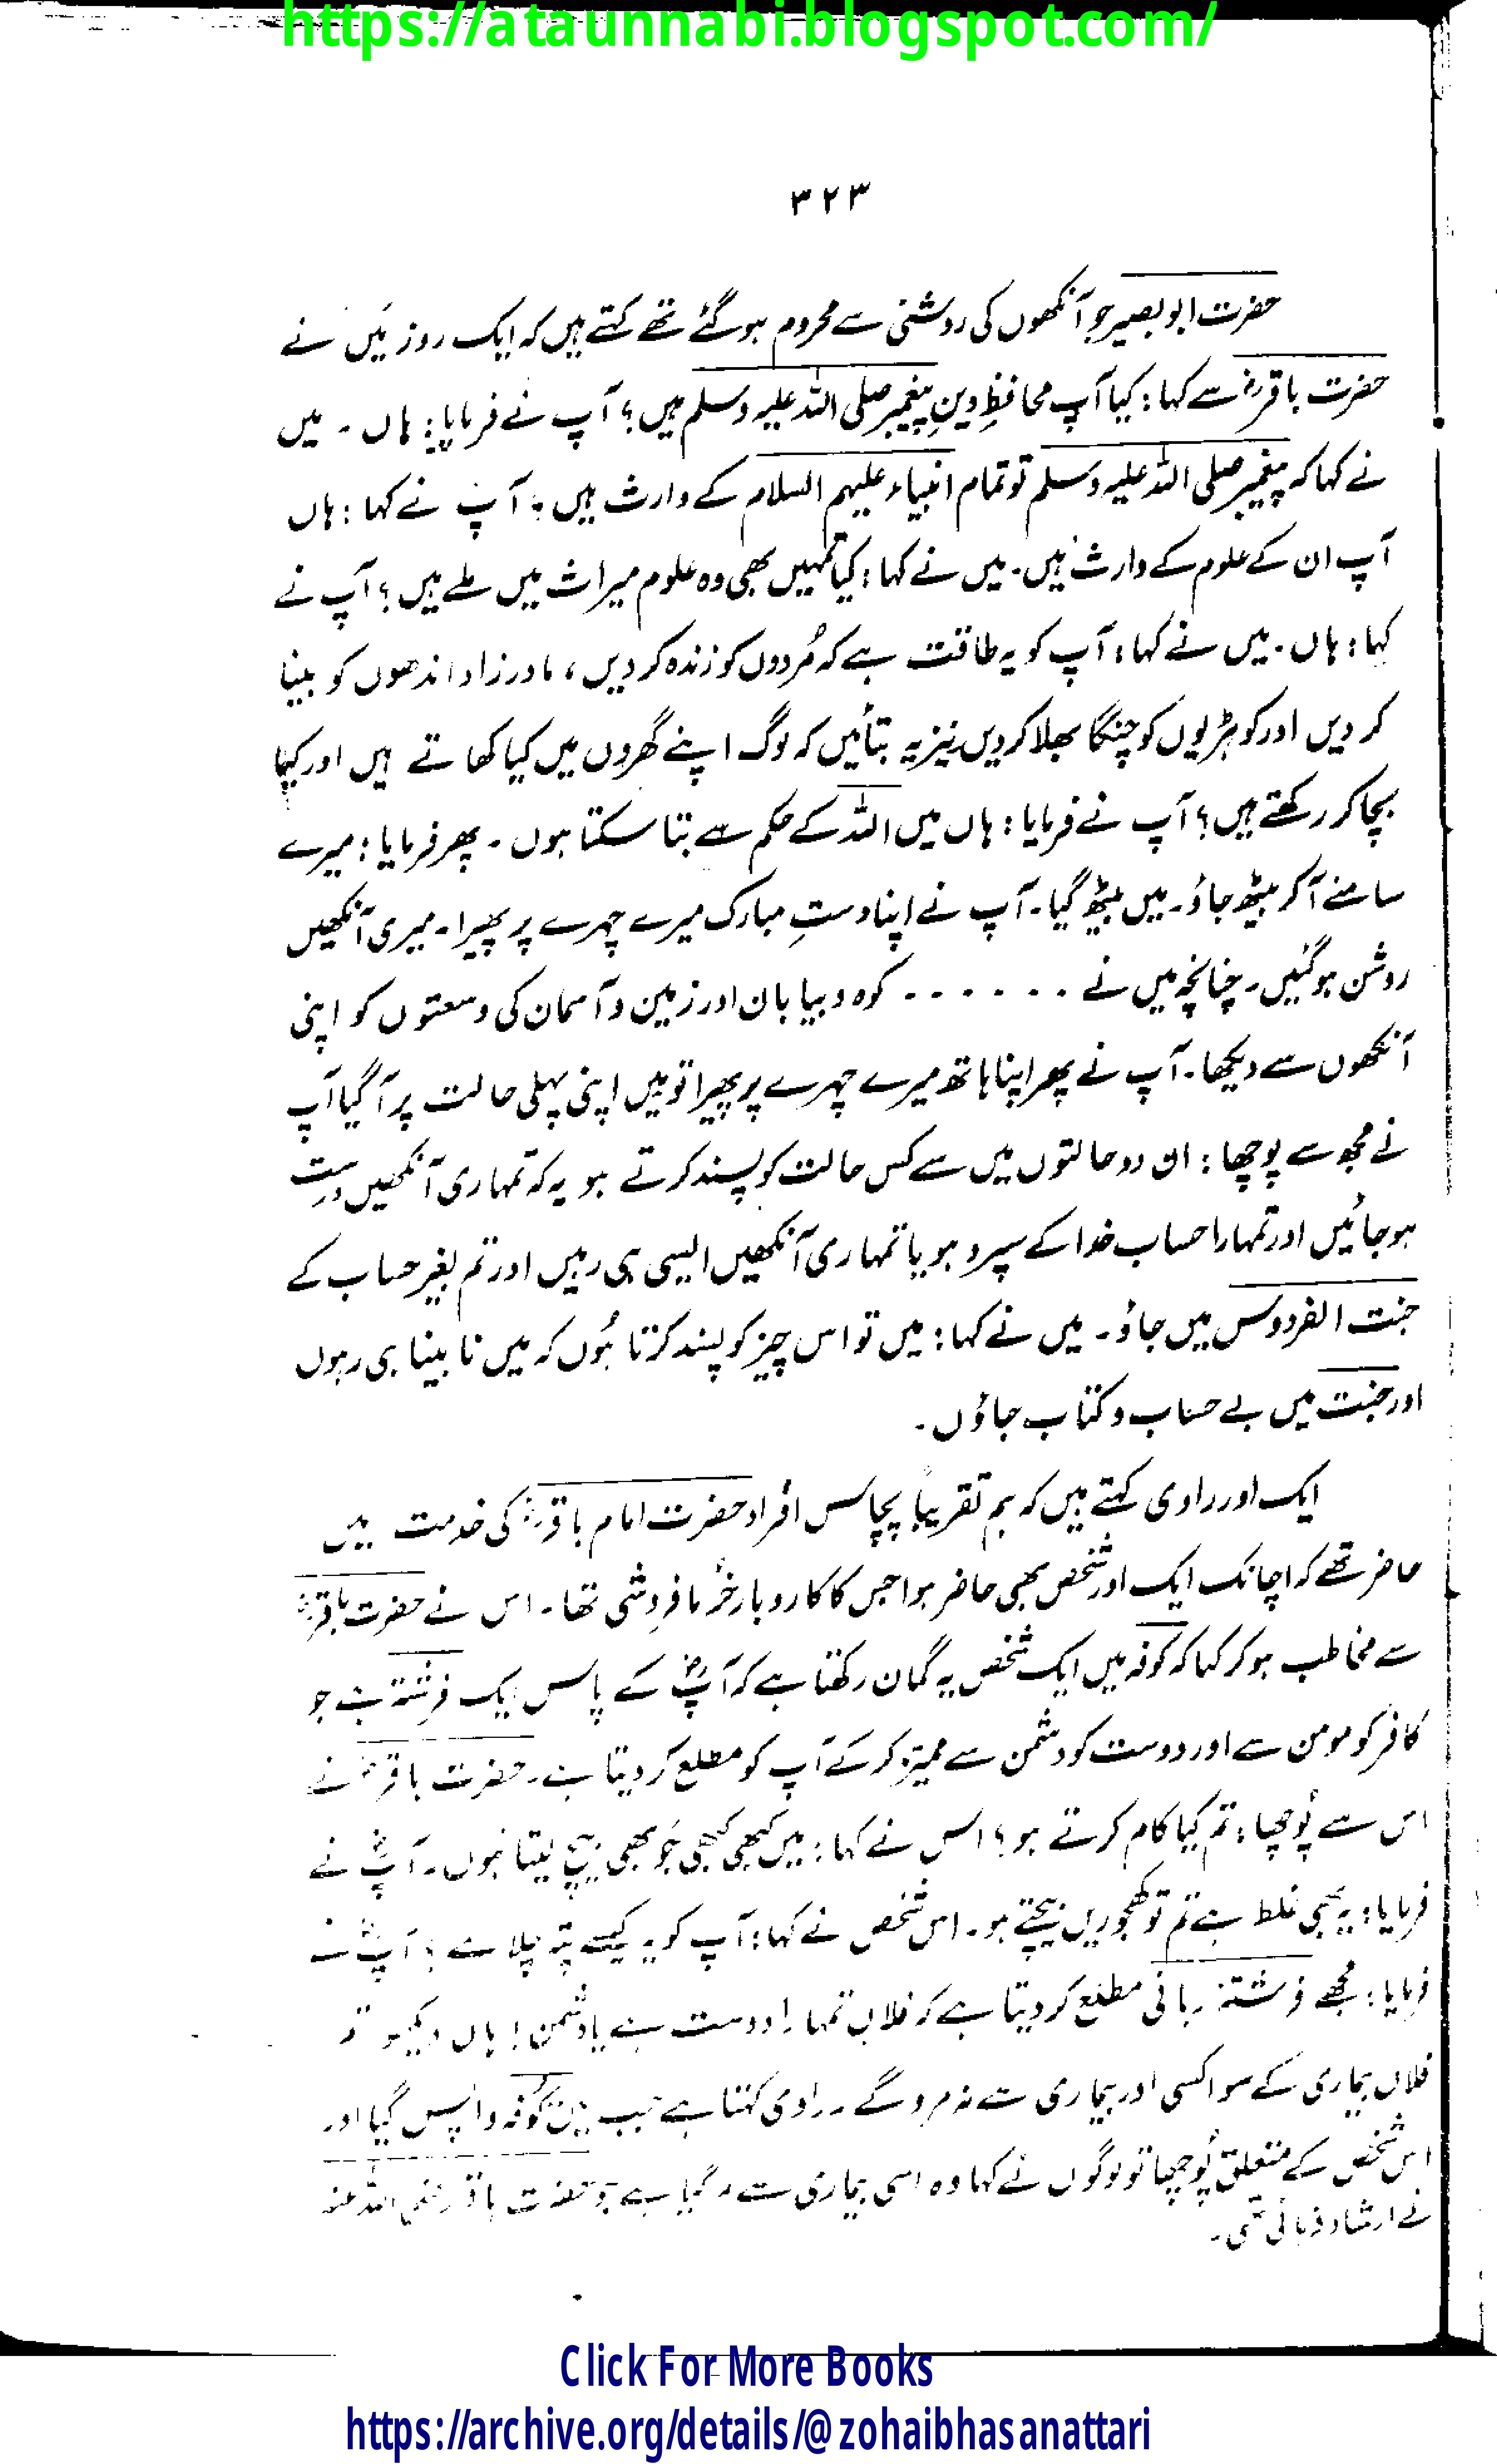 https://ataunnabi.blogspot.com/
۳۲۳
حضرت ابو بصیر جو آنکھوں کی روشنی سے محروم ہو گئے تھے کہتے ہیں کہ ایک روز میں نے
حضرت باقرؓ سے کہا: کیا آپ محافظِ دینِ پیغمبر صلی اللہ علیہ وسلم ہیں؟ آپ نے فرمایا: ہاں۔ میں
نے کہا کہ پیغمبر صلی اللہ علیہ وسلم تو تمام انبیاء علیہم السلام کے وارث ہیں؟ آپ نے کہا: ہاں
آپ ان کے علوم کے وارث ہیں۔ میں نے کہا: کیا تمہیں بھی وہ علوم میراث میں ملے ہیں؟ آپ نے
کہا: ہاں۔ میں نے کہا: آپ کو یہ طاقت ہے کہ مُردوں کو زندہ کر دیں، مادر زاد اندھوں کو بینا
کر دیں اور کوہڑیوں کو چنگا بھلا کر دیں نیز یہ بتائیں کہ لوگ اپنے گھروں میں کیا کھاتے ہیں اور کیا
بچا کر رکھتے ہیں؟ آپ نے فرمایا: ہاں میں اللہ کے حکم سے بتا سکتا ہوں۔ پھر فرمایا: میرے
سامنے آ کر بیٹھ جاؤ۔ میں بیٹھ گیا۔ آپ نے اپنا دستِ مبارک میرے چہرے پر پھیرا۔ میری آنکھیں
روشن ہو گئیں۔ چنانچہ میں نے ۔۔۔۔۔۔ کوہ و بیابان اور زمین و آسمان کی وسعتوں کو اپنی
آنکھوں سے دیکھا۔ آپ نے پھر اپنا ہاتھ میرے چہرے پر پھیرا تو میں اپنی پہلی حالت پر آ گیا آپ
نے مجھ سے پوچھا: ان دو حالتوں میں سے کس حالت کو پسند کرتے ہو یہ کہ تمہاری آنکھیں درست
ہو جائیں اور تمہارا حساب خدا کے سپرد ہو یا تمہاری آنکھیں ایسی ہی رہیں اور تم بغیر حساب کے
جنت الفردوس میں جاؤ۔ میں نے کہا: میں تو اس چیز کو پسند کرتا ہُوں کہ میں نابینا ہی رہوں
اور جنت میں بے حساب و کتاب جاؤں۔
ایک اور راوی کہتے ہیں کہ ہم تقریباً پچاس افراد حضرت امام باقرؓ کی خدمت میں
حاضر تھے کہ اچانک ایک اور شخص بھی حاضر ہوا جس کا کاروبار خُرما فروشی تھا۔ اس نے حضرت باقرؓ
سے مخاطب ہو کر کہا کہ کوفہ میں ایک شخص یہ گمان رکھتا ہے کہ آپؓ کے پاس ایک فرشتہ ہے جو
کافر کو مومن سے اور دوست کو دشمن سے ممیّز کر کے آپ کو مطلع کر دیتا ہے۔ حضرت باقرؓ نے
اس سے پُوچھا: تم کیا کام کرتے ہو؟ اس نے کہا: میں کبھی کبھی جَو بھی بیچ لیتا ہوں۔ آپؓ نے
فرمایا: یہ بھی غلط ہے تم تو کھجوریں بیچتے ہو۔ اس شخص نے کہا: آپ کو یہ کیسے پتہ چلا ہے؟ آپؓ نے
فرمایا: مجھے فرشتۂ ربانی مطلع کر دیتا ہے کہ فلاں تمہارا دوست ہے یا دشمن! ہاں دیکھو تم
فلاں بیماری کے سوا کسی اور بیماری سے نہ مرو گے۔ راوی کہتا ہے جب میں کوفہ واپس گیا اور
اس شخص کے متعلق پُوچھا تو لوگوں نے کہا وہ اسی بیماری سے مر گیا ہے جو حضرت باقر رضی اللہ عنہ
نے ارشاد فرمائی تھی۔
Click For More Books
https://archive.org/details/@zohaibhasanattari